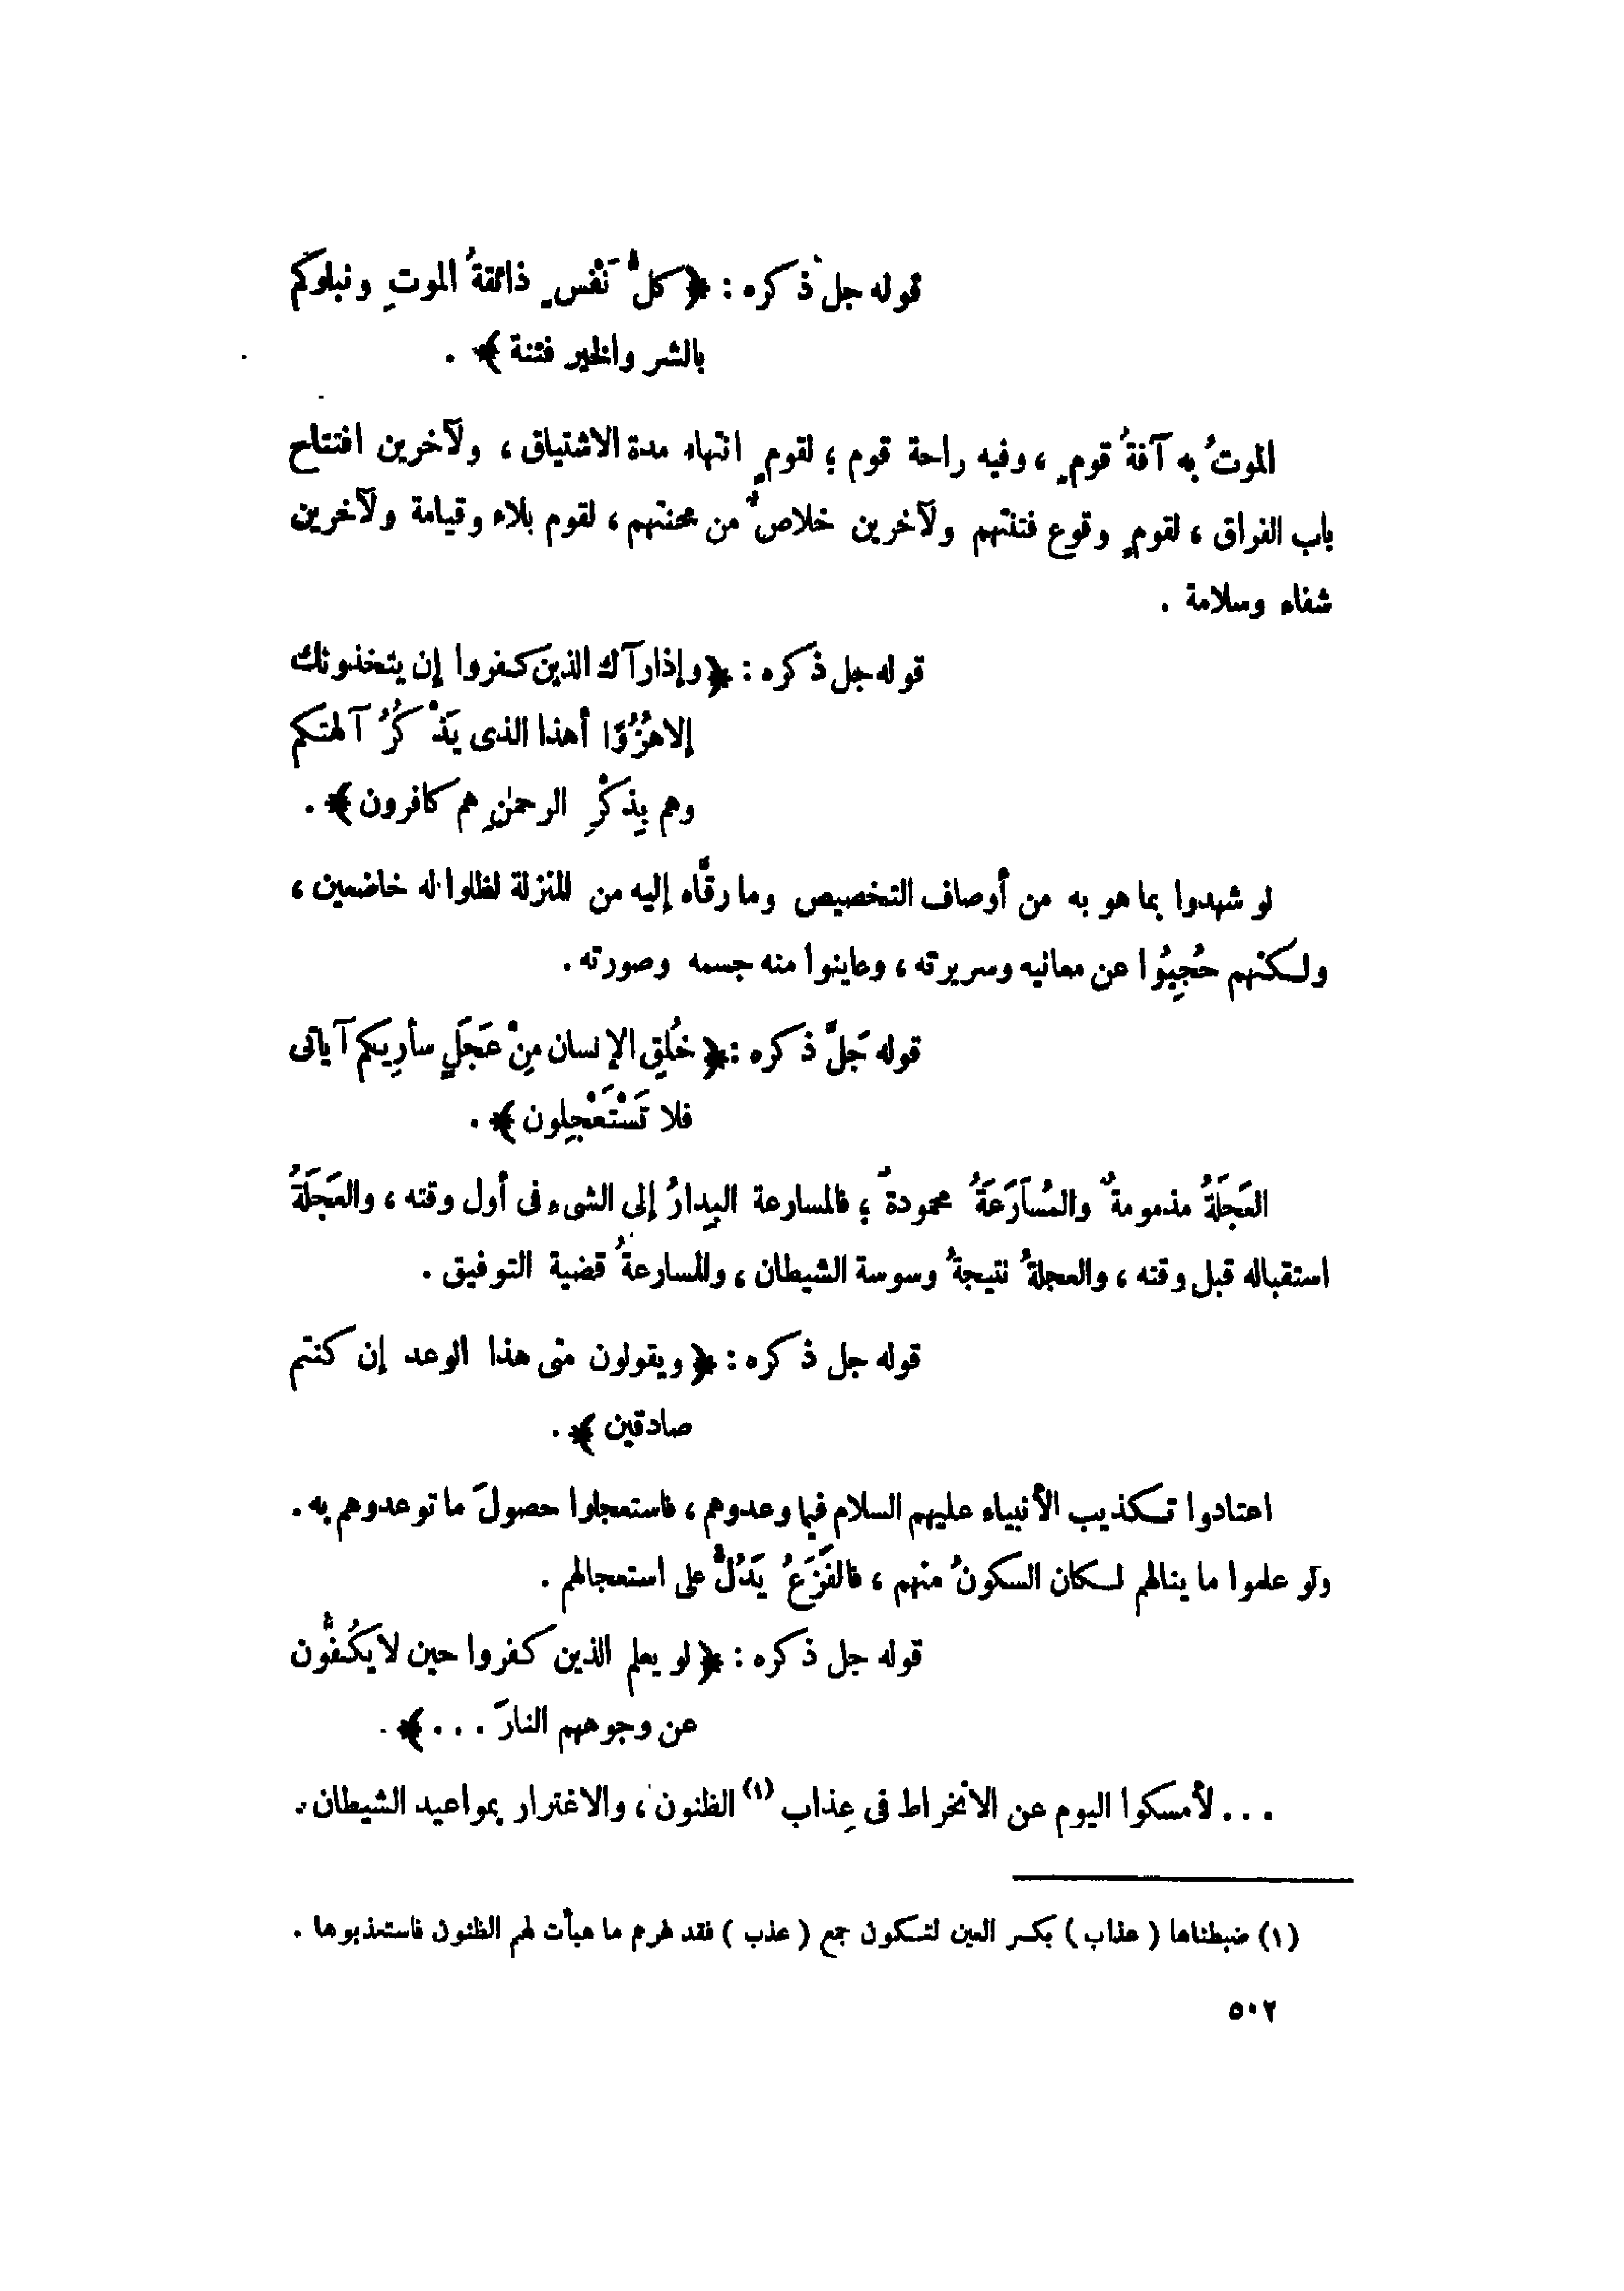 قوله جل ذكره : ﴿ كلُّ نَفْسٍ ذائقةُ الموتِ ونبلوكم
بالشر والخير فتنة ﴾ .
الموتُ به آفةُ قومٍ ، وفيه راحة قوم ؛ لقومٍ انتهاء مدة الاشتياق ، ولآخرين افتتاح
باب الفراق ، لقومٍ وقوع فتنتهم ولآخرين خلاصٌ من محنتهم ، لقوم بلاء وقيامة ولآخرين
شفاء وسلامة .
قوله جل ذكره : ﴿ وإذا رآك الذين كفروا إن يتخذونك
إلا هُزُوًا أهذا الذى يَذْكُرُ آلهتكم
وهم بِذكْرِ الرحمٰنِ هم كافرون ﴾ .
لو شهدوا بما هو به من أوصاف التخصيص وما رقَّاه إليه من المنزلة لظلوا له خاضعين ،
ولكنهم حُجِبُوا عن معانيه وسريرته ، وعاينوا منه جسمه وصورته .
قوله جَلَّ ذكره : ﴿ خُلِقِ الإنسان مِنْ عَجَلٍ سأُرِيكم آياتى
فلا تَسْتَعْجِلون ﴾ .
العَجَلَةُ مذمومةٌ والمُسَارَعَةُ محمودة ؛ فالمسارعة البِدارُ إلى الشىء فى أول وقته ، والعَجَلَةُ
استقباله قبل وقته ، والعجلةُ نتيجةُ وسوسة الشيطان ، والمسارعةُ قضية التوفيق .
قوله جل ذكره : ﴿ ويقولون متى هذا الوعد إن كنتم
صادقين ﴾ .
اعتادوا تكذيب الأنبياء عليهم السلام فيما وعدوهم ، فاستعجلوا حصولَ ما توعدوهم به .
ولو علموا ما ينالهم لكان السكونُ منهم ، فالفَزَعُ يَدُلُّ على استعجالهم .
قوله جل ذكره : ﴿ لو يعلم الذين كفروا حين لا يَكُفُّون
عن وجوههم النارَ . . . ﴾ .
. . . لأمسكوا اليوم عن الانخراط فى عِذاب (١) الظنون ، والاغترار بمواعيد الشيطان .
(١) ضبطناها ( عذاب ) بكسر العين لتكون جمع ( عذب ) فقد غرهم ما هيأت لهم الظنون فاستعذبوها .
٥٠٢